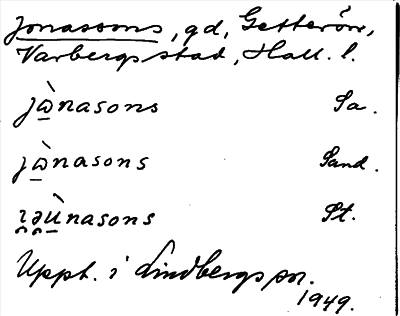 Jonassons, gd, Getterön,
Varbergs stad, Hall. l.
jὼ̠nasons Sa.
jὼ̠nasons Sand.
ɿ̯ə̯ù̠nasons St.
Uppt. i Lindbergs sn.
1949.